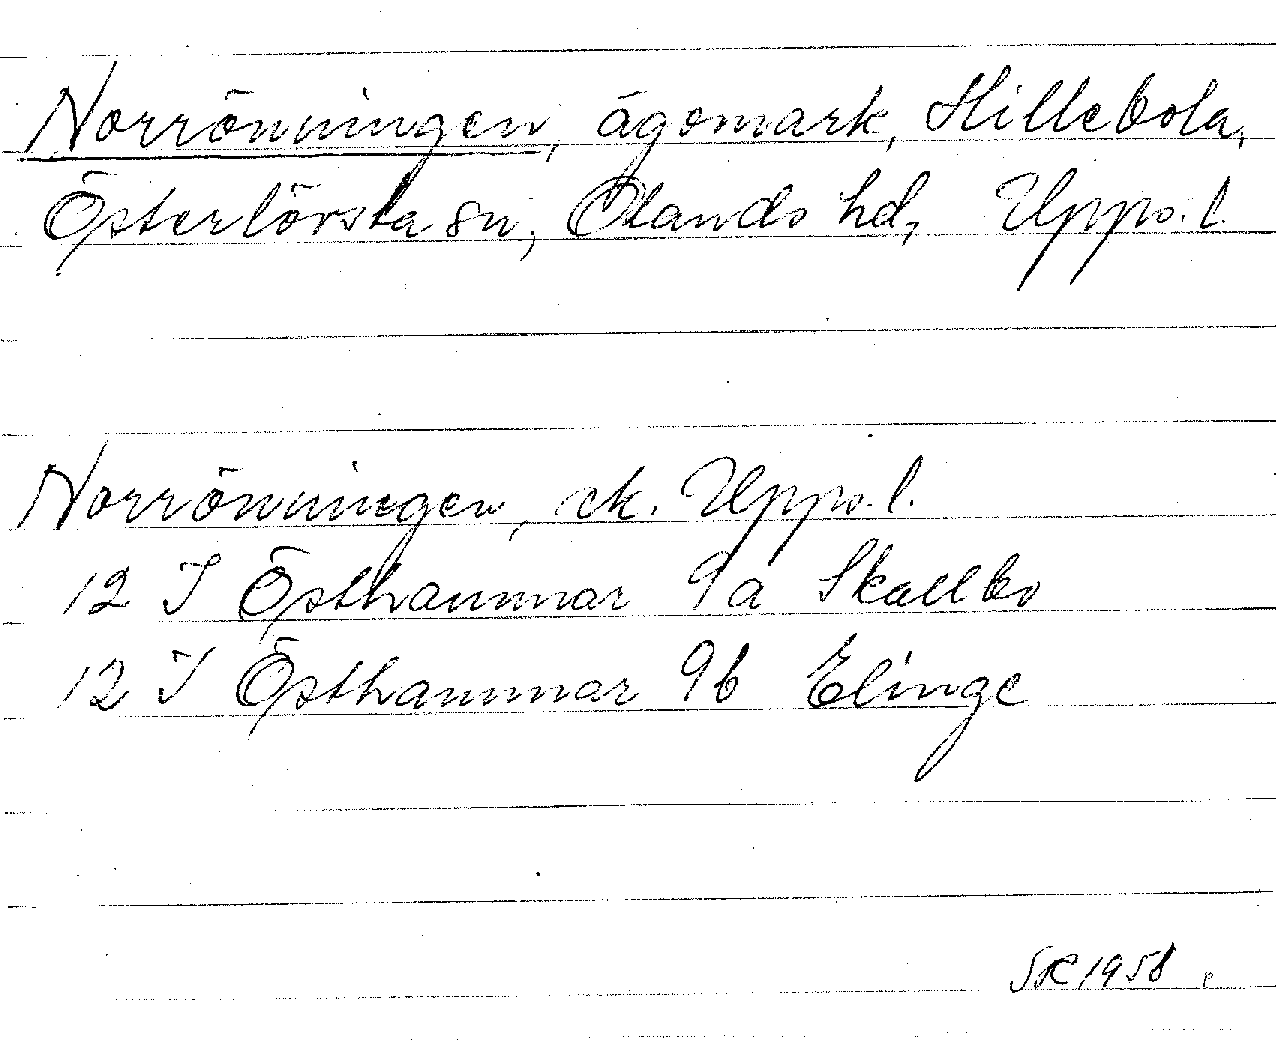 Norrönningen, ägomark, Hillebola,
Österlövsta sn, Olands hd, Upps. l.
Norrönningen, ek. Upps. l.
12 I Östhammar 9a Skallbo
12 I Östhammar 9b Elinge
SR 1958